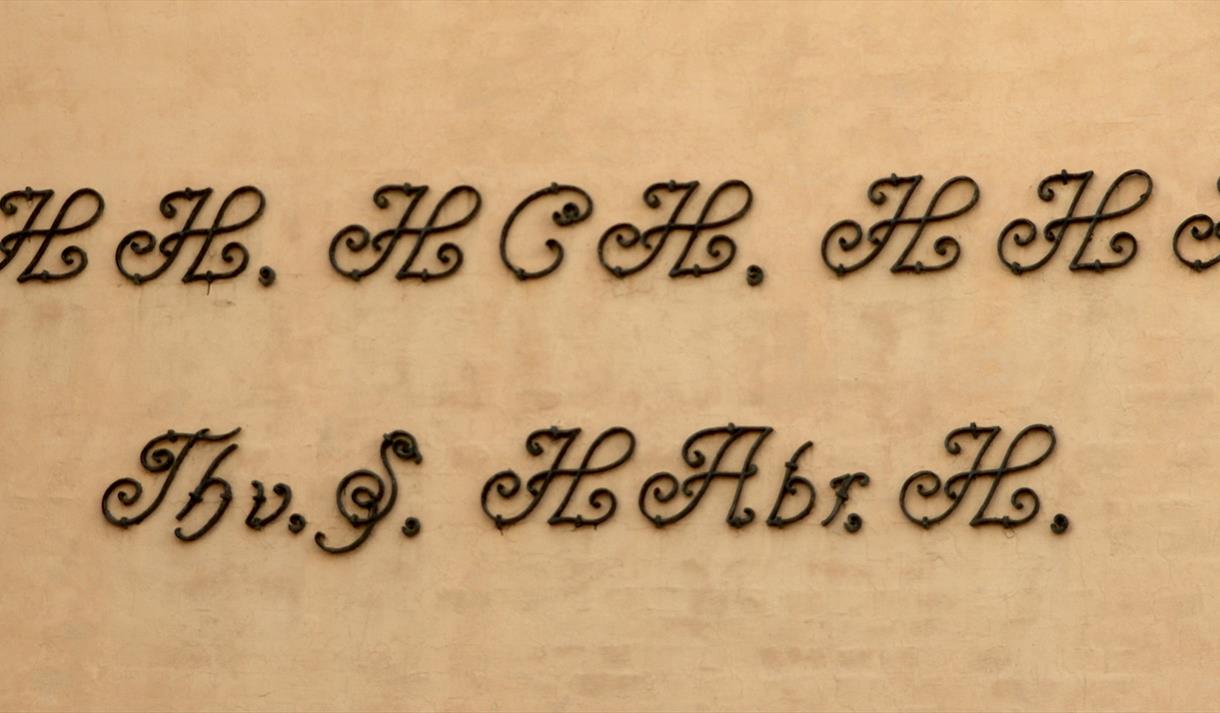 H H. H C H. H H
Thv. S. H Abr. H.